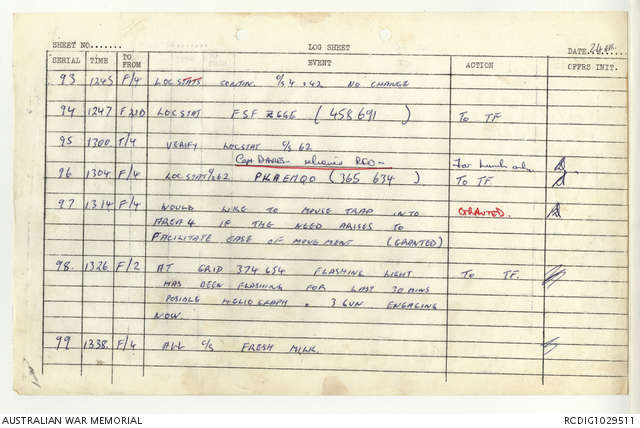 SHEET NO....... LOG SHEET DATE 24
SERIAL TIME TO FROM EVENT ACTION OFFRS INIT.
93 1245 F/4 LOCSTATS CONFIRM. C/S 4 + 42 NO CHANGE
94 1247 LOCSTAT FSF (458691) TO TF
95 1300 T/4 VERIFY LOCSTAT C/S 62
Capt DAVIES - relieves RSO - For lunch only
96 1304 F/4 LOCSTAT 62 (365 634) TO TF.
97 1314 F/4 WOULD LIKE TO MOUSE TRAP INTO GRANTED.
AREA 4 IF THE NEED ARISES TO
FACILITATE EASE OF MOVEMENT (GRANTED)
98. 1326 F/2 AT GRID 374654 FLASHING LIGHT TO TF.
HAS BEEN FLASHING FOR LAST 30 MINS
POSIBLE HELIOGRAPH. 3 GUN ENGAGING
NOW.
99 1338. F/4 ALL C/S FRESH MILK.
AUSTRALIAN WAR MEMORIAL RCDIG1029511